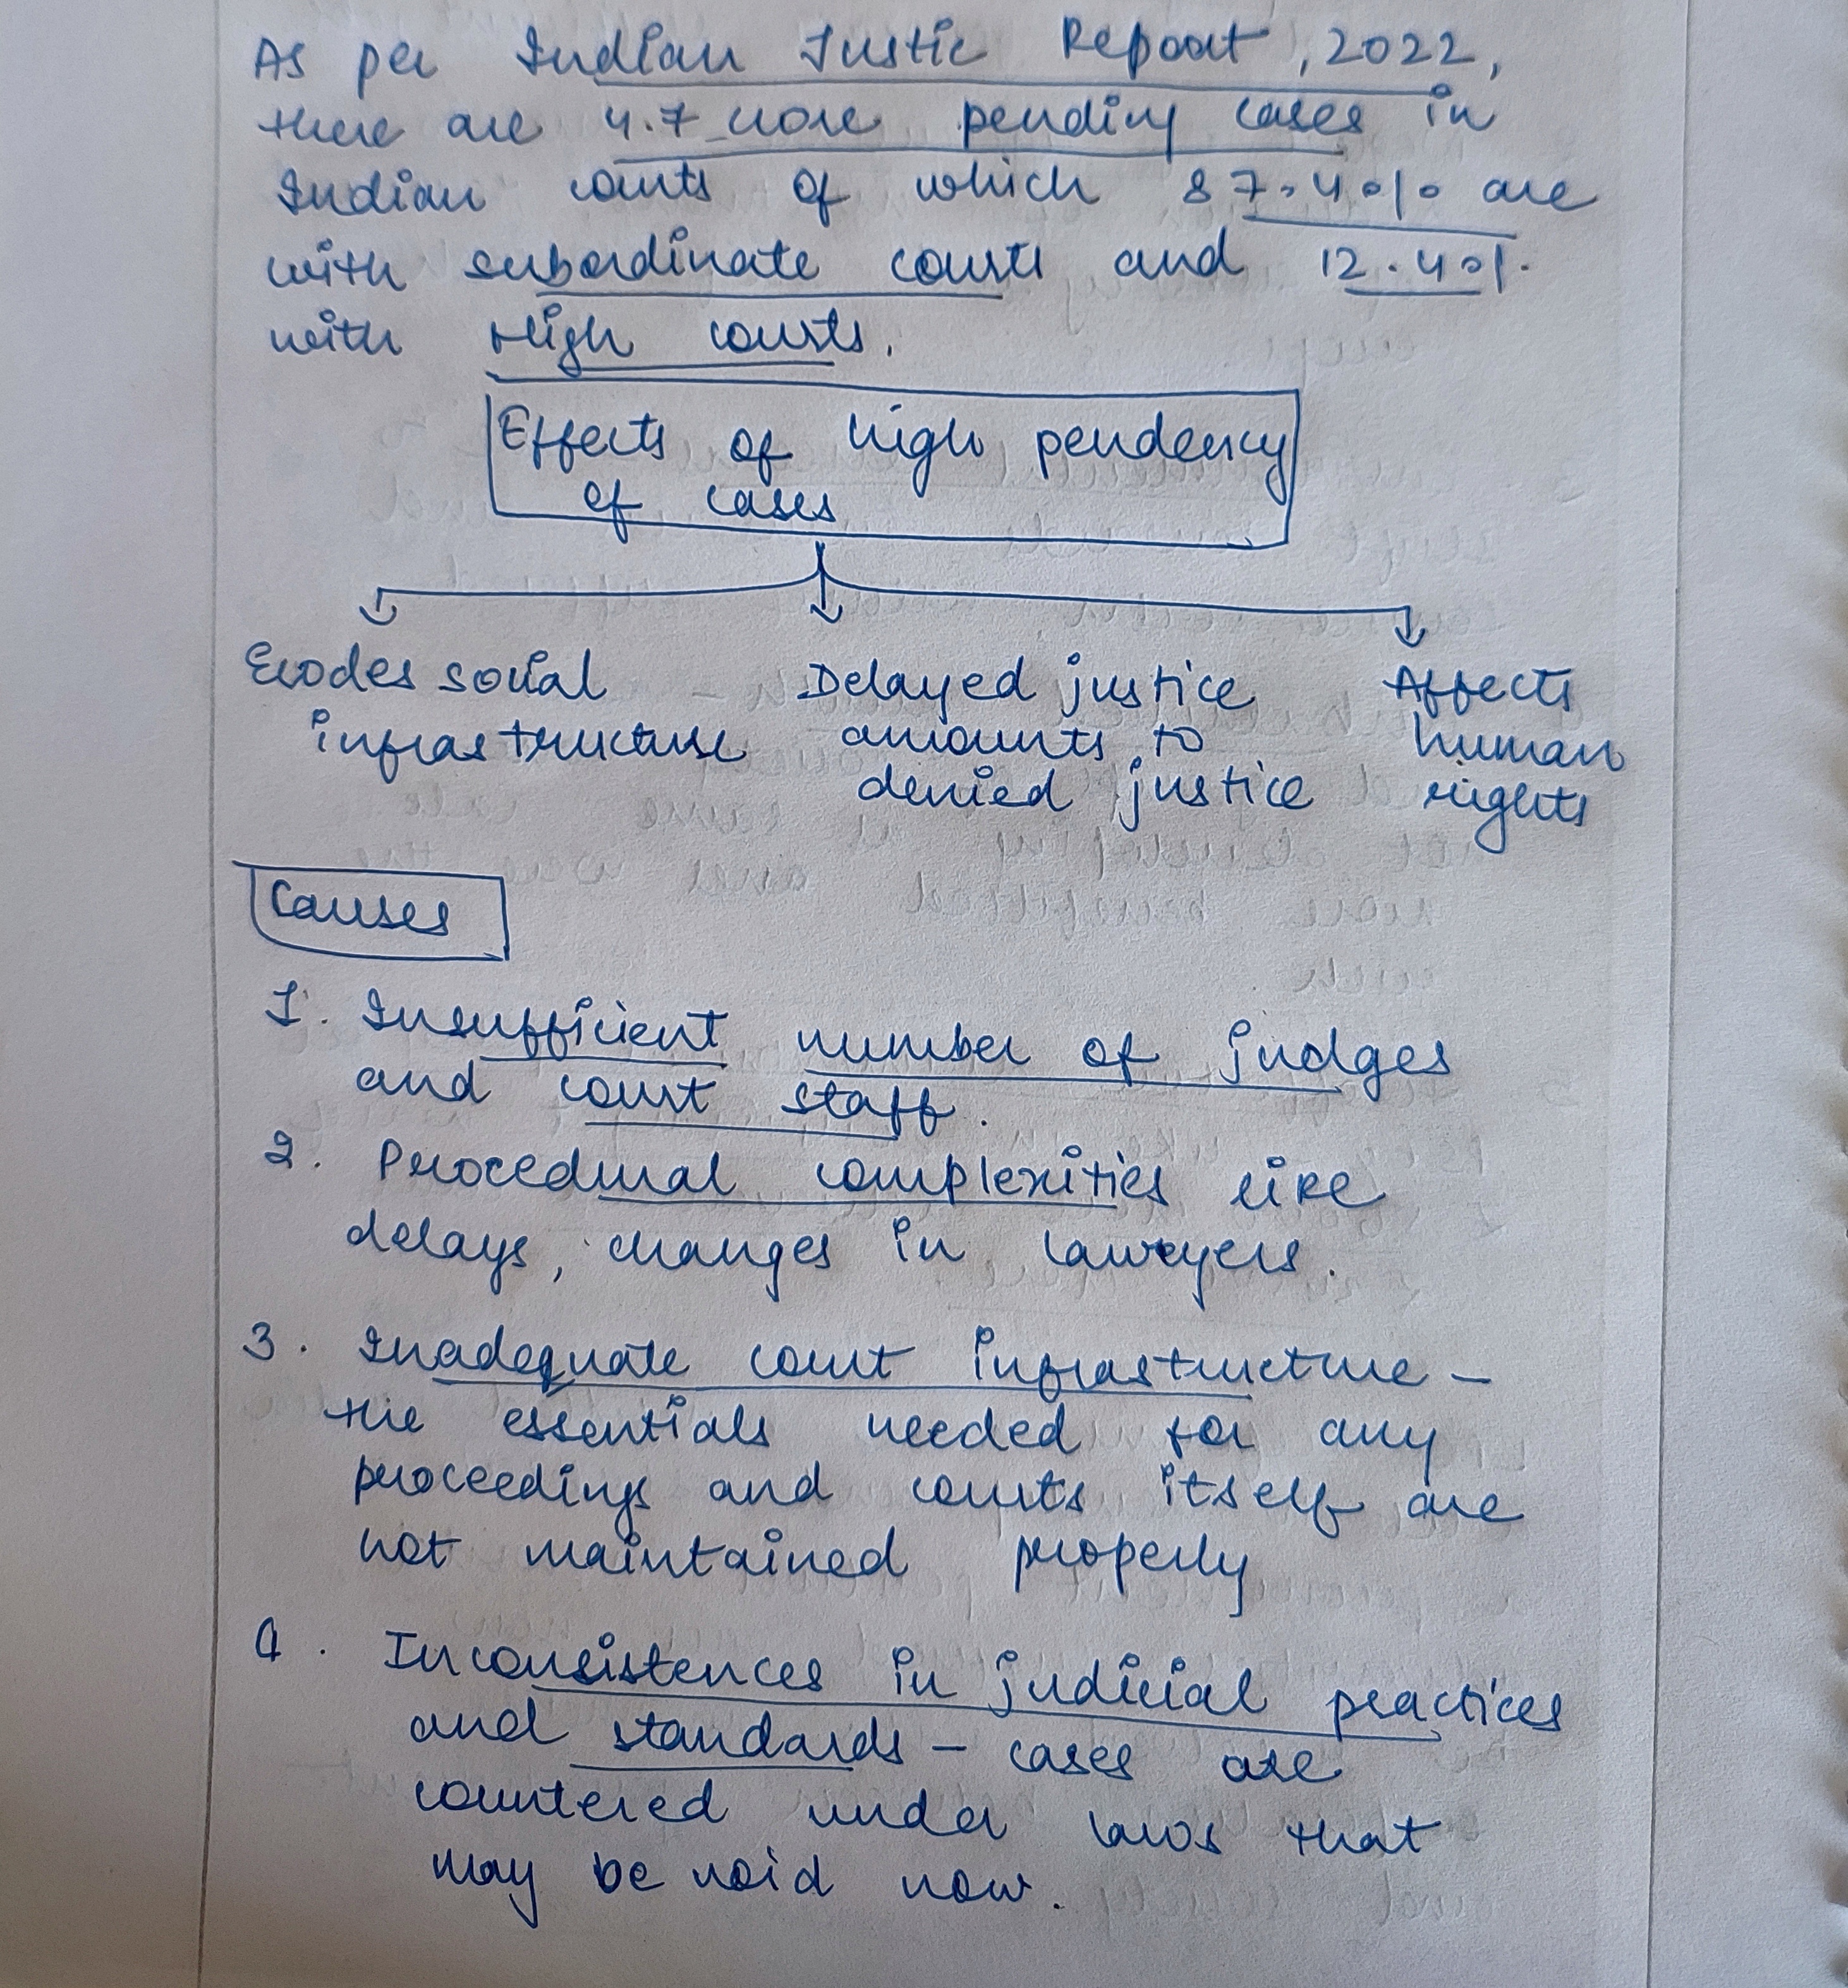 As per Indian Justic Repoort, 2022,
there are 4.7 crore pending cases in
Indian courts of which 87.4% are
with subordinate courts and 12.4%
with High courts.
Effects of high pendency
of cases
Erodes social - Delayed justice Affects
infrastructure amounts to human
denied justice rights
Causes
1. Insufficient number of judges
and court staff.
2. Procedural complexities like
delays, changes in lawyers.
3. Inadequate court infrastructure -
the essentials needed for any
proceedings and courts itself are
not maintained properly
4. Inconsistences in judicial practices
and standards - cases are
countered under laws that
may be void now.